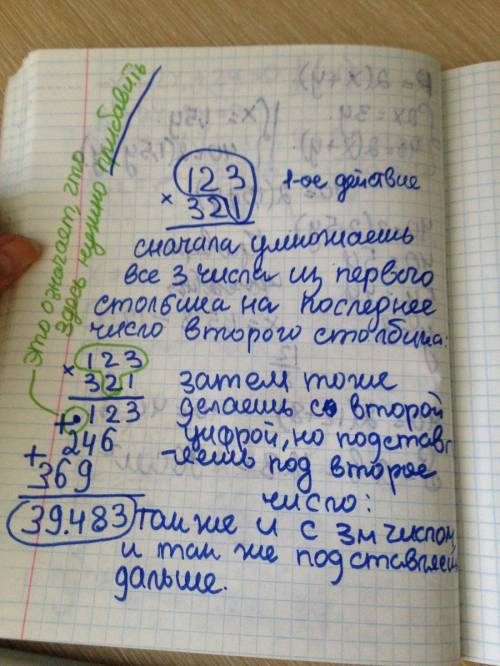 это означает, что
здесь нужно прибавить
123
× 321
1-ое действие
сначала умножаешь
все 3 числа из первого
столбика на последнее
число второго столбика:
× 123
321
+ 123
+ 246
369
39.483
затем тоже
делаешь со второй
цифрой, но подставл
-яешь под второе
число:
там же и с 3м числом,
и там же подставляеш
дальше.